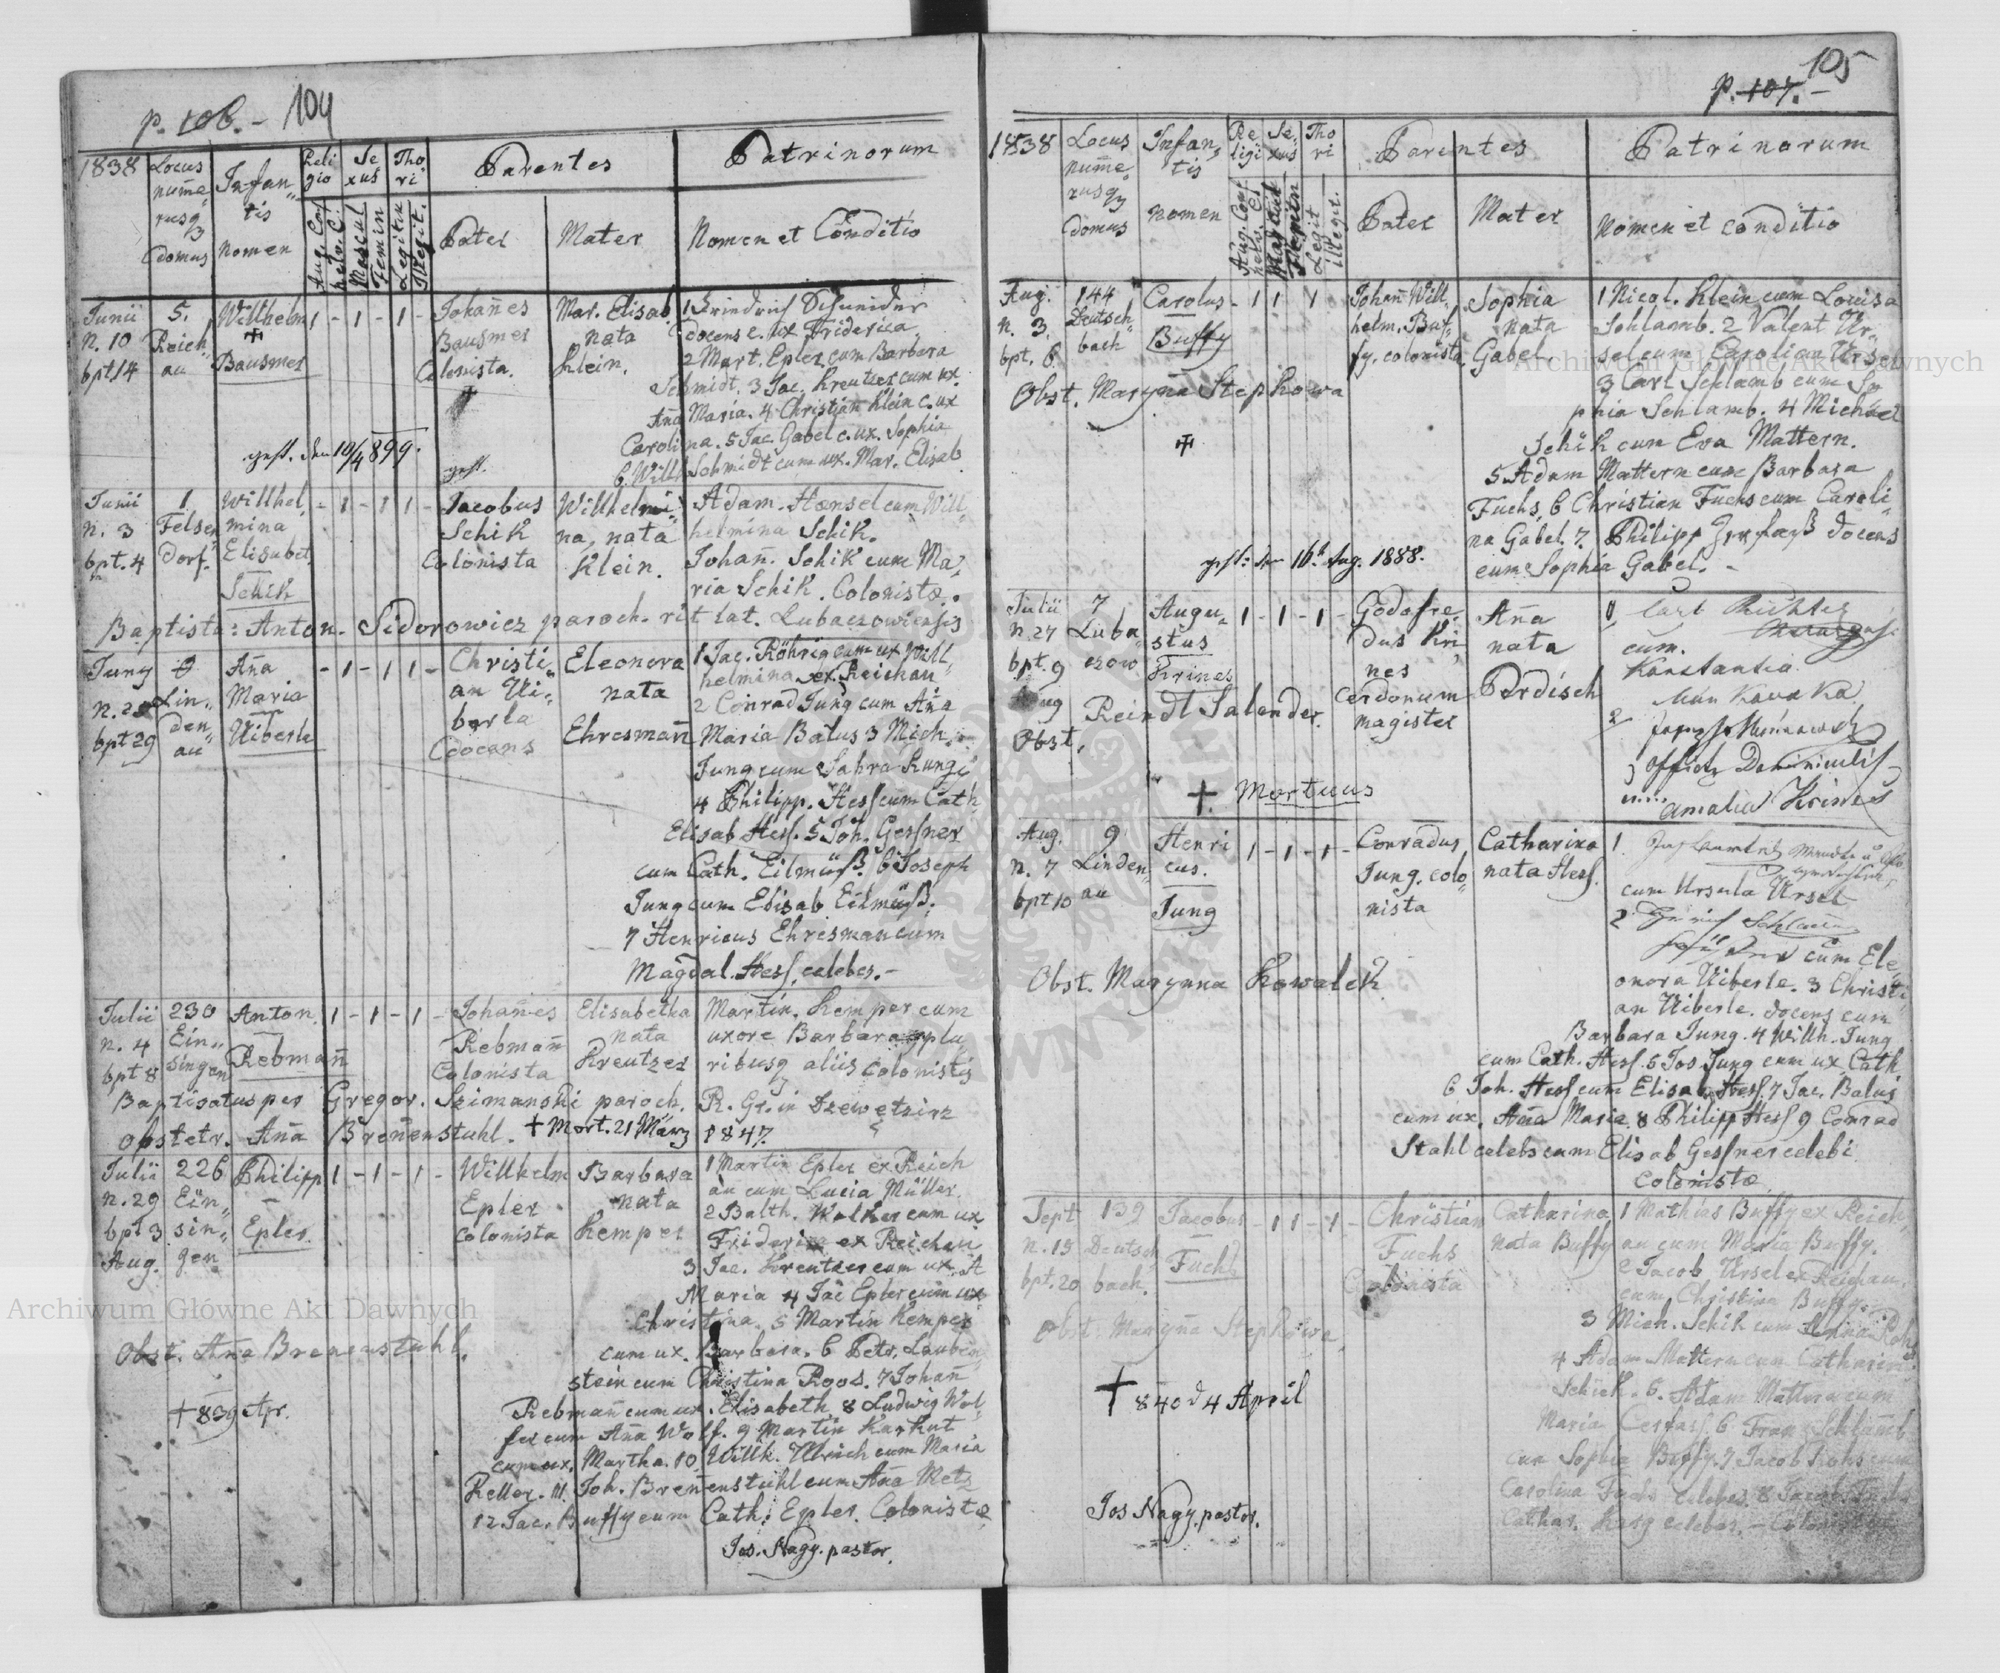 p. 106. - 104
1838 Locus numerusq domus Infantis nomen Religio Sexus Thori Parentes Patrinorum
Aug. Conf. helv. C. Mascul Femin Legitim Illegit. Pater Mater Nomen et Conditio
Junii 5. Willhelm 1 - 1 - 1 - Johañes Mar. Elisab.
n. 10 Reich- + Bausmer nata docens c. ux Friderica
bpt. 14 au Bausmer Colonista. Klein. 2 Mart. Epler cum Barbara
+ Schmidt. 3 Jac. Kreutzer cum ux.
Aña Maria. 4 Christian Klein c. ux
Carolina. 5 Jac. Gabel c. ux. Sophia
gest. den 10/4 899. gest. 6. Willh Schmidt cum ux. Mar. Elisab
Junii 1 Willhel- - 1 - 1 1 - Jacobus Willhelmi- Adam. Hansel cum Will-
n. 3 Felsen mina Schik na, nata helmina Schik.
bpt. 4 dorf. Elisabet. Colonista Klein. Johañ. Schik cum Ma-
Schik ria Schik. Colonistæ.
Baptista: Anton. Sidorowicz paroch. rit lat. Lubaczowiensis
Juny 9 Aña - 1 - 1 1 - Christi- Eleonora 1 Jac. Röhrig cum ux Willhelmina ex Reichau
Lin- Maria an Ui- nata 2 Conrad Jung cum Aña
bpt 29 denau Uiberle berla docens Ehresmañ Maria Balus 3 Mich.
Jung cum Sahra
4 Philipp. Hess cum Cath
Elisab Hess. 5 Joh. Gessner
cum Cath. Eilmüß. 6 Joseph
Jung cum Elisab Eilmüß.
7 Henricus Ehresman cum
Magdal. Hess, celebes. -
Julii 230 Anton. 1 - 1 - 1 - Johañes Elisabetha Martin. Kemper cum
n. 4 Ein- Rebmañ nata uxore Barbara plu
bpt 8 singen Rebmañ Colonista Kreutzer ribusq aliis colonistis
Baptisatus per Gregor. Szimanski paroch. R. Gr. in
Obstetr. Aña Breñenstuhl. + Mort. 21 März 1847.
Julii 226 Philipp 1 - 1 - 1 - Willhelm Barbara 1 Martin Epler ex Reich
n. 29 Ein- - Epler nata au cum Lucia Müller
bpt 3 sin- Epler. Colonista Kemper 2 Balth. Walker cum ux
Aug. gen Friderica ex Reichau
3 Jac. Kreutzer cum ux. A
Maria 4 Jac Epler cum ux
Christina. 5 Martin Kemper
Obst. Ana Brenenstuhl. cum ux. Barbara. 6 Petr. Lauben
stein cum Christina Roos. 7 Johañ
+ 839 Apr. Rebmañ cum ux. Elisabeth 8 Ludwig Wol-
fer cum Aña Wolf. 9 Martin Karkut
cum ux. Martha. 10 Willh. Ulrich cum Maria
Keller. 11. Joh. Breñenstuhl cum Aña Metz
12 Jac. Buffy cum Cath. Epler. Colonistæ
Jos. Nagy. pastor.
p. 107. - 105
1838 Locus numerusq domus Infantis nomen Religi Sexus Thori Parentes Patrinorum
Aug. Conf. helv. C. Mascul Femin Legit illegit. Pater Mater Nomen et conditio
Aug. 144 Carolus - 1 1 1 Johañ Will- Sophia 1 Nicol. Klein cum Louisa
n. 3. Deutsch- helm. Buf- nata Schlamb. 2 Valent Ur-
bpt. 6 bach Buffy fy, colonista Gabel sel cum Carolina Ursel
Obst. Maryña Stephowa 3 Carl Schlamb cum So
phia Schlamb. 4 Michael
+ Schik cum Eva Mattern.
5 Adam Mattern cum Barbara
Fuchs, 6 Christian Fuchs cum Caroli-
na Gabel. 7. Philipp docens
gest: den 16t Aug. 1888. cum Sophia Gabel. -
Julii 7 Augu- 1 - 1 - 1 - Godofre- Aña 1, Carl Richter
n. 27 Luba- stus dus Kri nata cum.
bpt. 9 czow Krines nes Perdisch Konstantia
Aug Reindl Salender. Cerdonum
Obst. magister 2
3 Amalia Krines
+ Mortuus
Aug. 9 Henri 1 - 1 - 1 - Conradus Catharina 1.
n. 7 Linden- cus. Jung. colo- nata Hess.
bpt 10 au Jung nista cum Ursula Ursel
2
cum Ele-
Obst. Maryña Kowalek onora Uiberle. 3 Christi-
an Uiberle. docens cum
Barbara Jung. 4 Willh. Jung
cum Cath. Hess. 5 Jos Jung cum ux. Cath
6 Joh. Hess cum Elisab Hess. 7 Jac. Balus
cum ux. Aña Maria. 8 Philipp Hess 9 Conrad
Stahl celebs cum Elisab Gessner celebi
Colonistæ
Sept 139 Jacobus - 1 1 - 1 - Christian Catharina 1 Mathias Buffy ex Reich-
n. 15 Deutsch Fuchs Fuchs nata Buffy au cum Maria Buffy.
bpt. 20 bach. Colonista 2 Jacob Ursel ex Reichau.
cum Christina Buffy.
Obst. Maryña Stephowa 3 Mich. Schik cum
4 Adam Mattern cum Catharina
Schik. 5. Adam Mattern cum
+ 840 d 4 April Maria 6 Franz Schlamb
cum Sophia Buffy. 7 Jacob Rohs cum
Carolina Fuchs celebes. 8 Jacob Fuchs
Jos Nagy. pastor. Cathar. Karg celebes. - Colonistæ
Archiwum Główne Akt Dawnych
Archiwum Główne Akt Dawnych